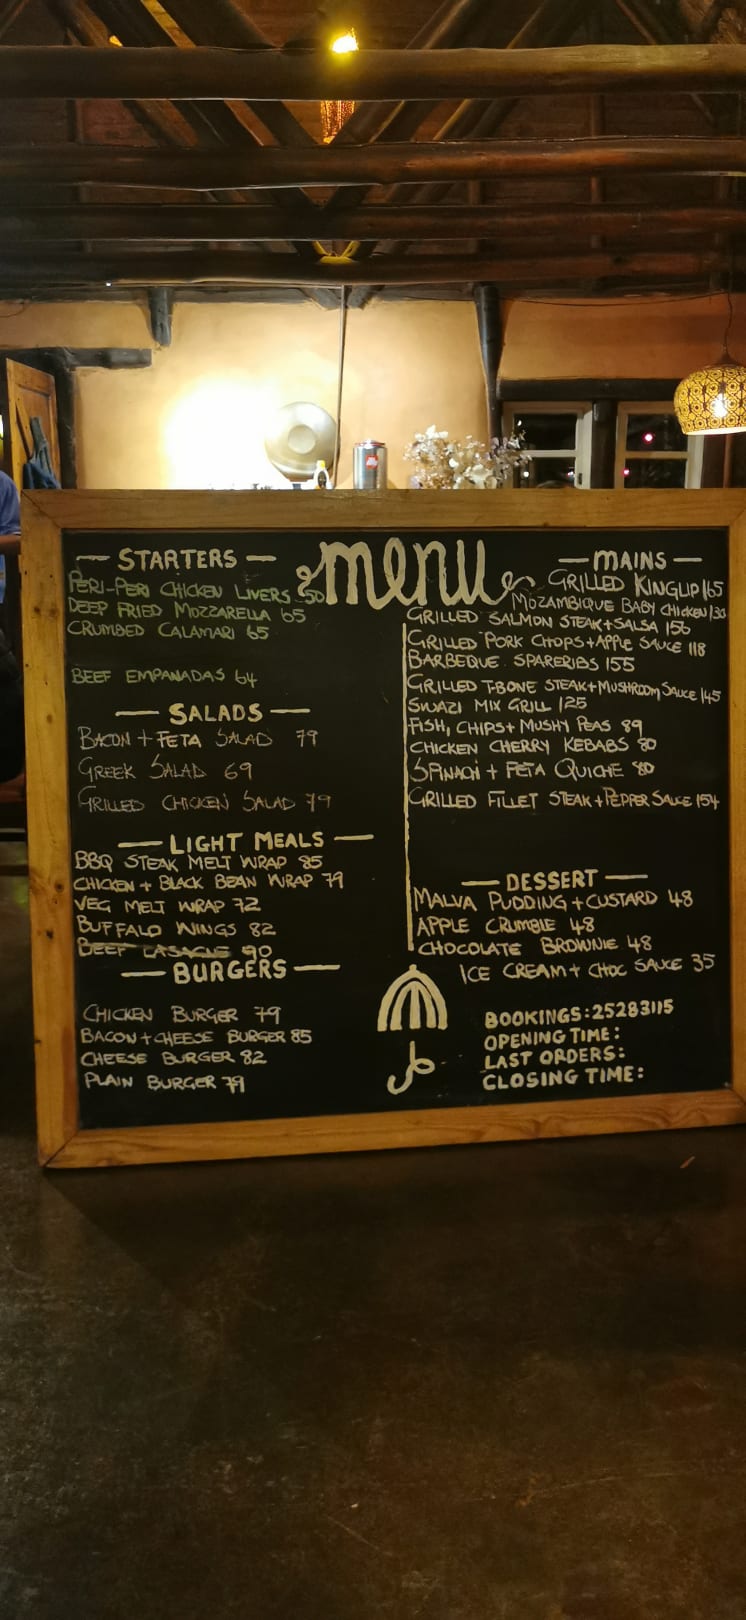 menu
STARTERS
PERI-PERI CHICKEN LIVERS 50
DEEP FRIED MOZZARELLA 65
CRUMBED CALAMARI 65
BEEF EMPANADAS 64
SALADS
BACON + FETA SALAD 79
GREEK SALAD 69
GRILLED CHICKEN SALAD 79
LIGHT MEALS
BBQ STEAK MELT WRAP 85
CHICKEN + BLACK BEAN WRAP 79
VEG MELT WRAP 72
BUFFALO WINGS 82
BEEF LASAGNE 90
BURGERS
CHICKEN BURGER 79
BACON + CHEESE BURGER 85
CHEESE BURGER 82
PLAIN BURGER 79
MAINS
GRILLED KINGLIP 165
MOZAMBIQUE BABY CHICKEN 130
GRILLED SALMON STEAK + SALSA 156
GRILLED PORK CHOPS + APPLE SAUCE 118
BARBEQUE SPARERIBS 155
GRILLED T-BONE STEAK + MUSHROOM SAUCE 145
SWAZI MIX GRILL 125
FISH, CHIPS + MUSHY PEAS 89
CHICKEN CHERRY KEBABS 80
SPINACH + FETA QUICHE 80
GRILLED FILLET STEAK + PEPPER SAUCE 154
DESSERT
MALVA PUDDING + CUSTARD 48
APPLE CRUMBLE 48
CHOCOLATE BROWNIE 48
ICE CREAM + CHOC SAUCE 35
BOOKINGS: 25283115
OPENING TIME:
LAST ORDERS:
CLOSING TIME: